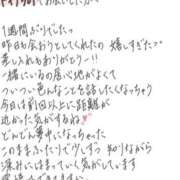 1週間ぶりでたっ
昨日も会おうとしてくれたの 嬉しすぎた
差し入れもありがとう―!!
一緒にいるの居心地がよくて
ついつい色んなことを話したくなっちゃう
今日は前回以上に距離が
近かった気がするね
どんどん夢中になっちゃった
このままふたりで少しずつ 知りながら
深みにはまっていく気がしています